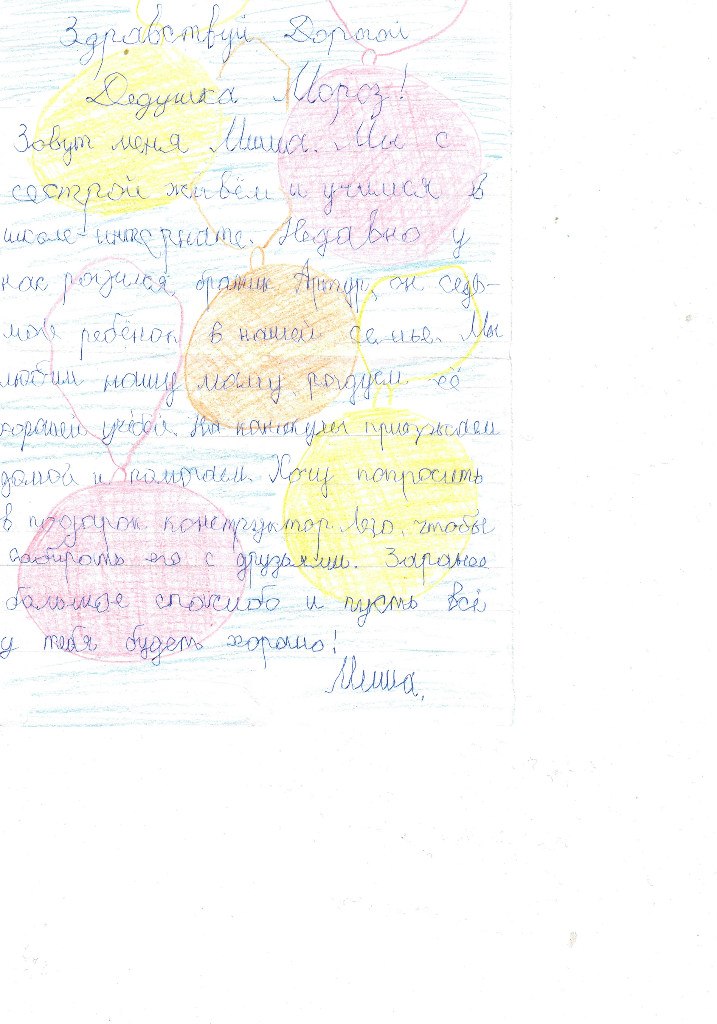 Здравствуй Дорогой
Дедушка Мороз!
Зовут меня Миша. Мы с
сестрой живём и учимся в
школе-интернате. Недавно у
нас родился братик Артур, он седь-
мой ребёнок в нашей семье. Мы
любим нашу маму, радуем её
хорошей учёбой. На каникулы приезжаем
домой и помогаем. Хочу попросить
в подарок конструктор Лего, чтобы
собирать его с друзьями. Заранее
большое спасибо и пусть всё
у тебя будет хорошо!
Миша.